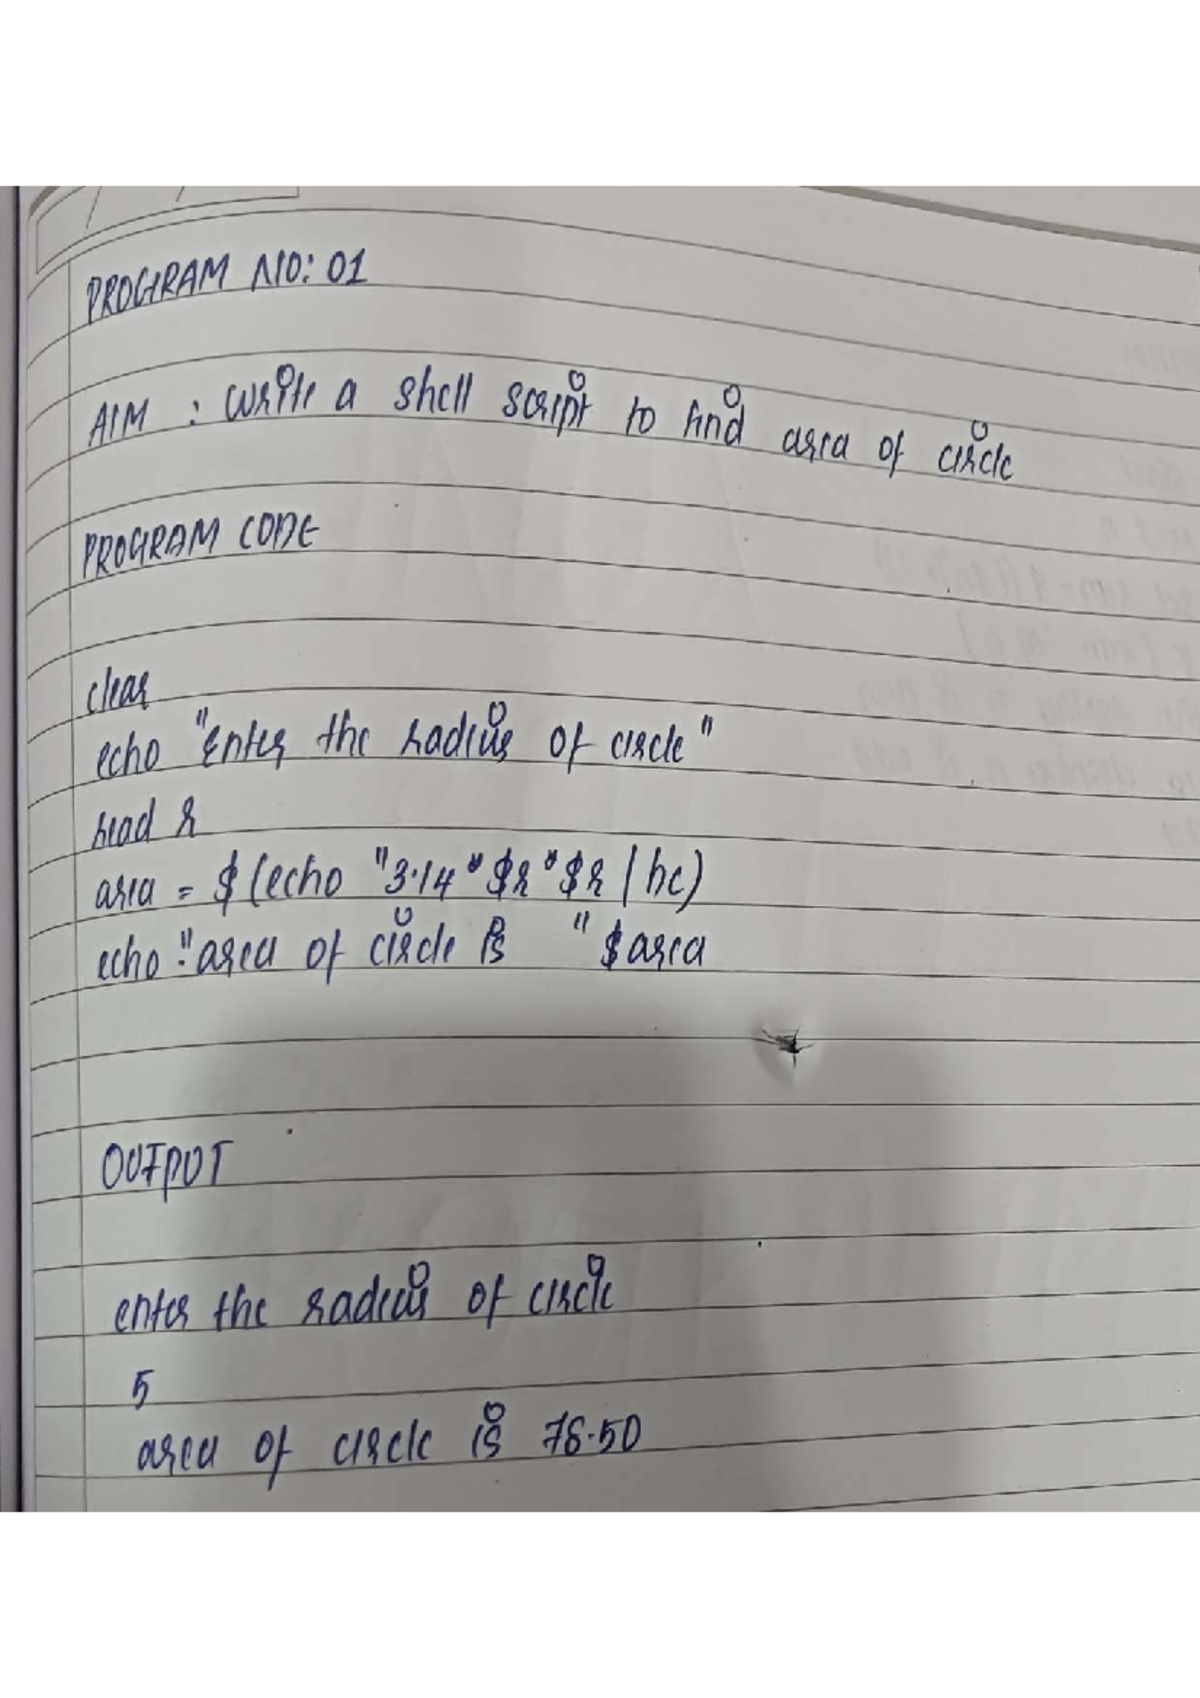 PROGRAM NO: 01
AIM : Write a shell script to find area of circle
PROGRAM CODE
clear
echo "Enter the radius of circle"
read r
area = $(echo "3.14 * $r * $r | bc)
echo "area of circle is " $area
OUTPUT
enter the radius of circle
5
area of circle is 78.50